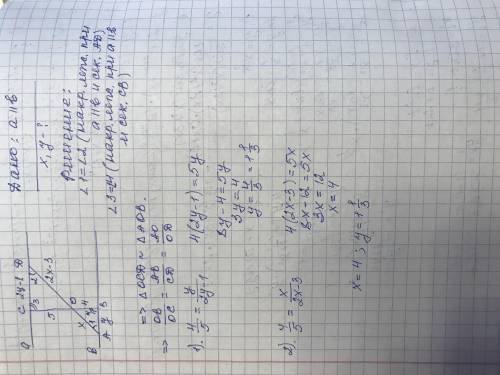 Дано: a||в
x, y-?
Решение:
∠1=∠2 (накр. леж. при
a||в и сек. AD)
∠3=∠4 (накр. леж. при a||в
и сек. CB)
a C 2y-1 D
3 2
5 2x-3
O
x 4
4 1
B A y B
=> △OCD ~ △AOB.
=> OB/OC = AB/CD = AO/OD
1). 4/5 = y/2y-1 4(2y-1)=5y
8y-4=5y
3y=4
y=4/3=1 1/3
2). 4/5 = x/2x-3 4(2x-3)=5x
8x-12=5x
3x=12
x=4
x=4; y=1 1/3